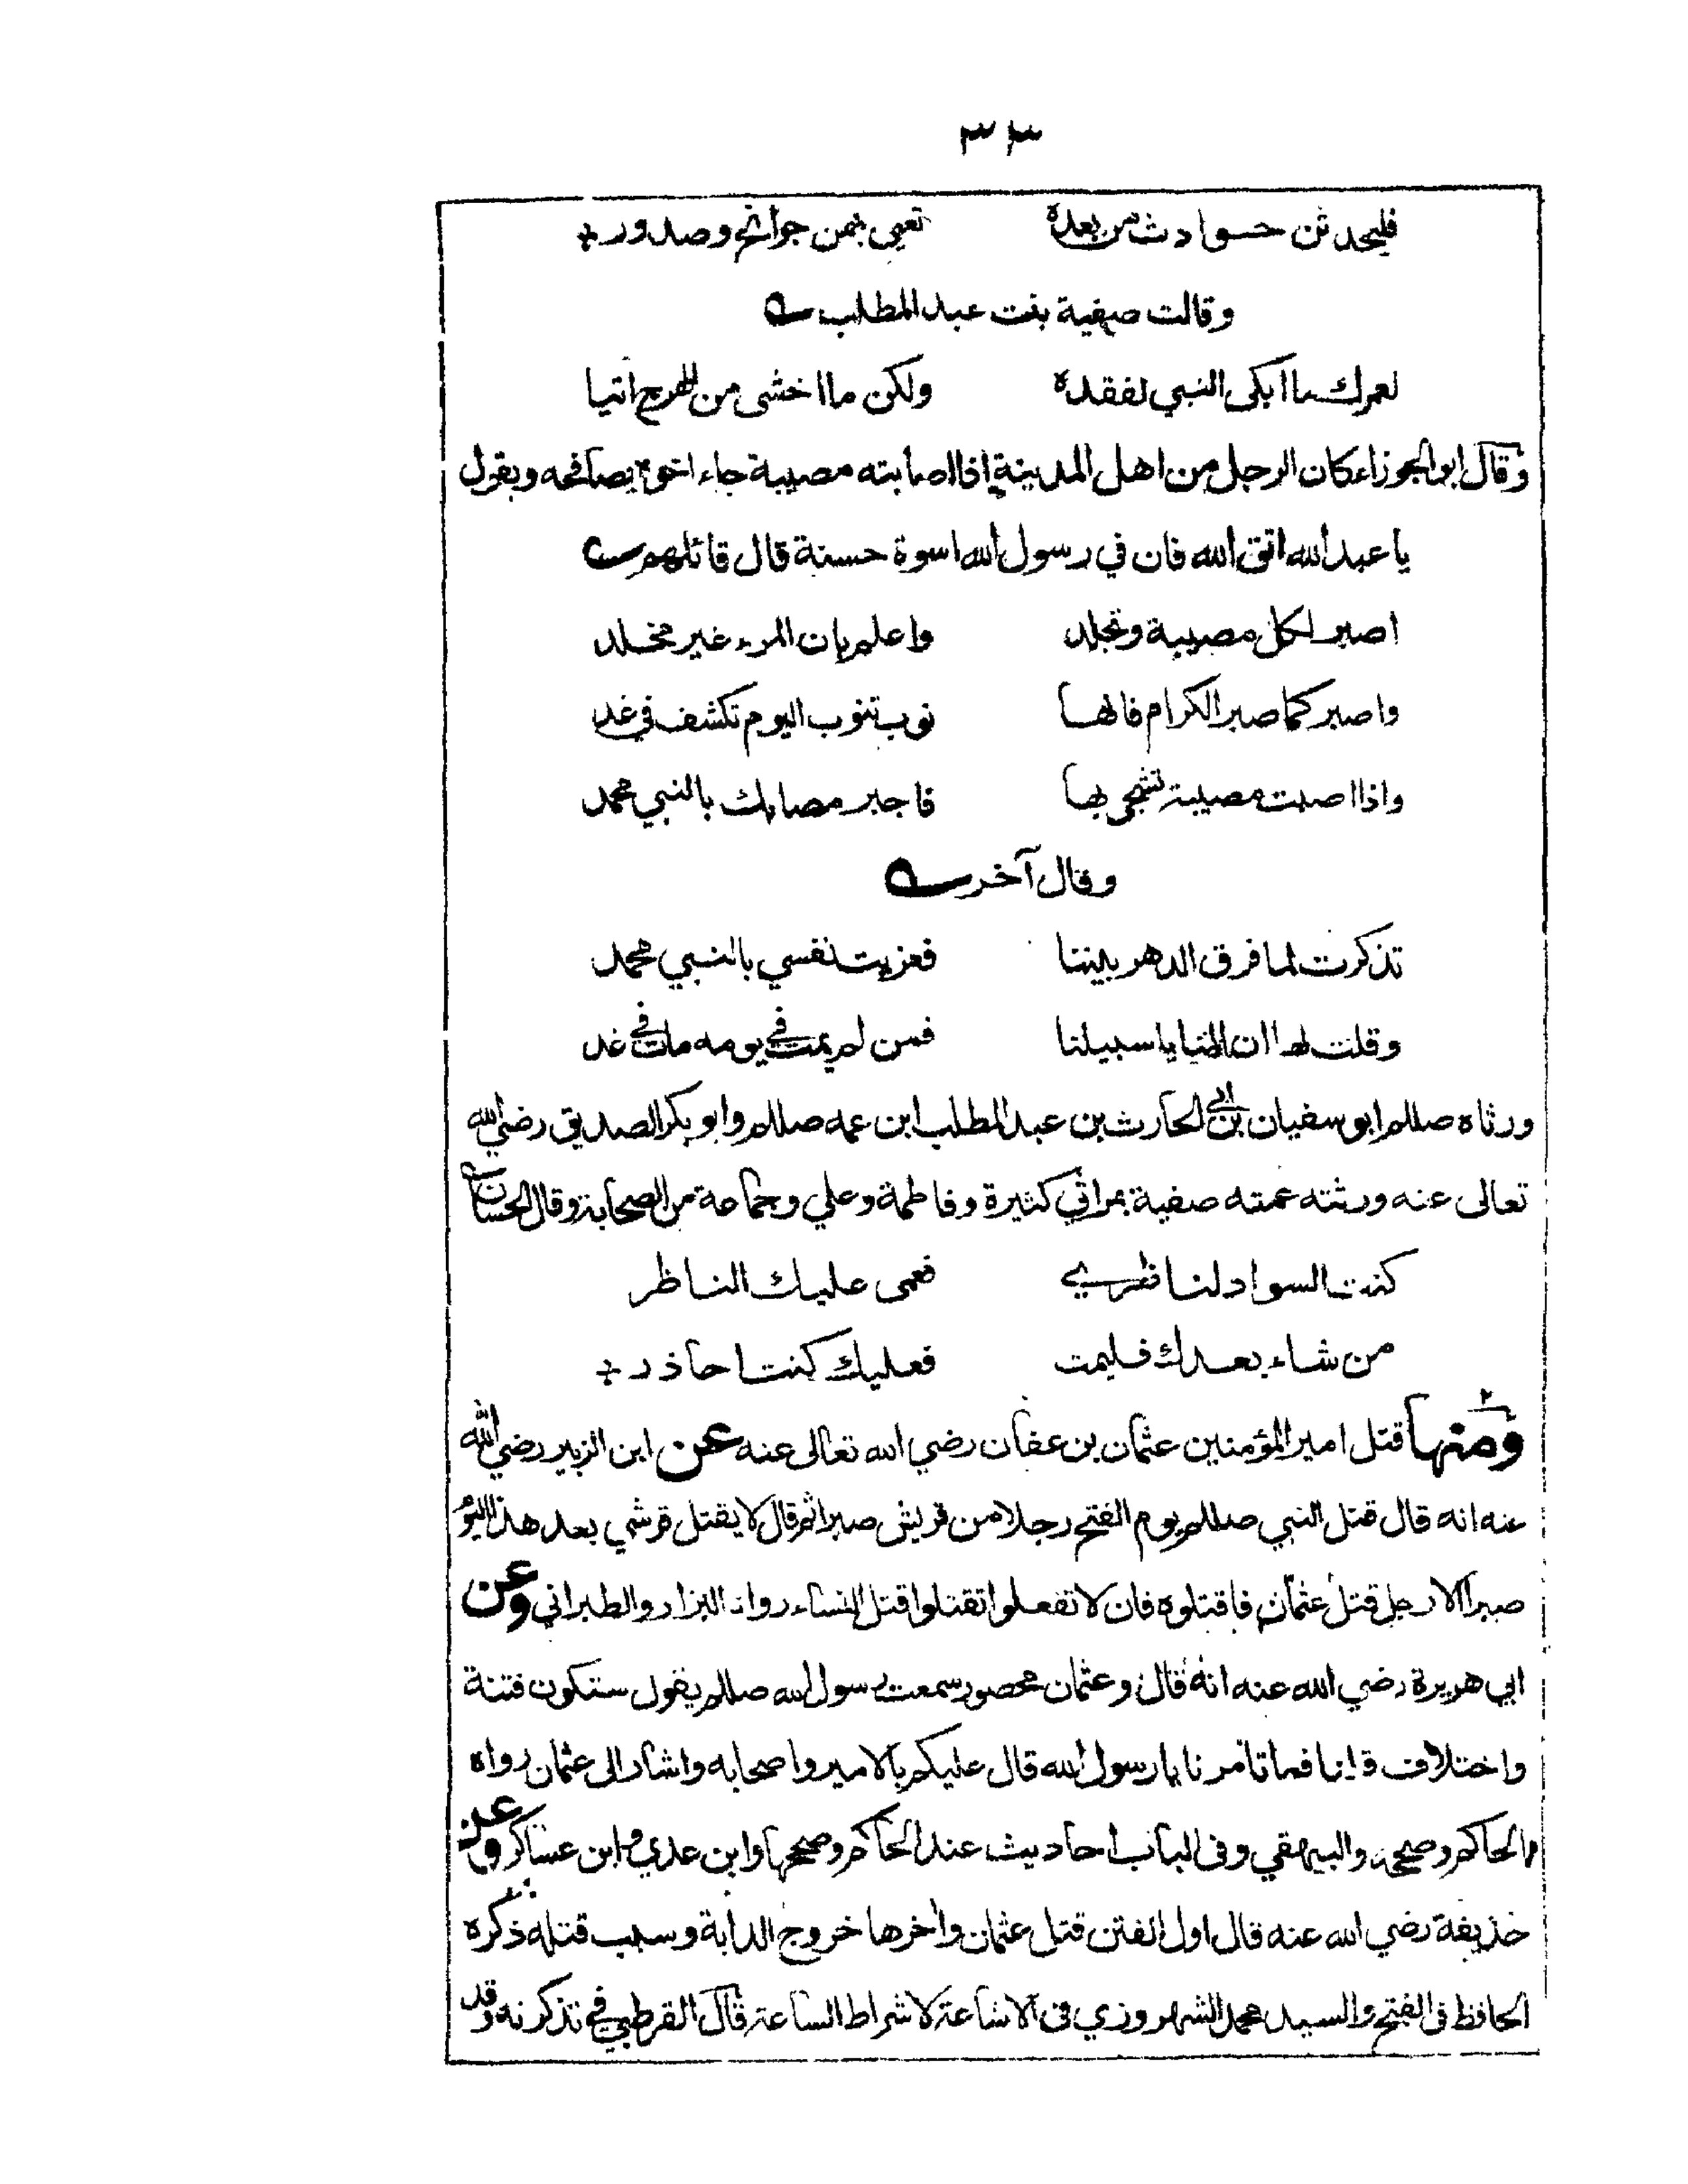 ٣٣
فليحدثن حوادث من بعده تعيى بهمن جوانح وصدور
وقالت صفية بنت عبد المطلب
لعمرك ما ابكى النبي لفقده ولكن ما اخشى من الهرج اتيا
وقال ابو الجوزاء كان الرجل من اهل المدينة اذا اصابته مصيبة جاء اخوه يصافحه ويقول
يا عبد الله اتق الله فان في رسول الله اسوة حسنة قال قائلهم
اصبر لكل مصيبة وتجلد واعلم بان المرء غير مخلد
واصبر كما صبر الكرام فانها نوب تنوب اليوم تكشف في غد
واذا اصبت مصيبة تشجى بها فاجبر مصابك بالنبي محمد
وقال آخر
تذكرت لما فرق الدهر بيننا فعزيت نفسي بالنبي محمد
وقلت لها ان المنايا سبيلنا فمن لم يمت في يومه مات في غد
ورثاه صللم ابو سفيان بن ابي الحارث بن عبد المطلب ابن عمه صللم وابو بكر الصديق رضي الله
تعالى عنه ورثته عمته صفية بمراثي كثيرة وفاطمة وعلي وجماعة من الصحابة وقال الحسان
كنت السواد لناظري فعمى عليك الناظر
من شاء بعدك فليمت فعليك كنت احاذر
ومنها قتل امير المؤمنين عثمان بن عفان رضي الله تعالى عنه عن ابن الزبير رضي الله
عنه انه قال قتل النبي صللم يوم الفتح رجلا من قريش صبرا ثم قال لا يقتل قرشي بعد هذا اليوم
صبرا الا رجل قتل عثمان فاقتلوه فان لا تفعلوا تقتلوا قتل النساء رواه البزار والطبراني وعن
ابي هريرة رضي الله عنه انه قال وعثمان محصور سمعت رسول الله صللم يقول ستكون فتنة
واختلاف قلنا فما تأمرنا يا رسول الله قال عليكم بالامير واصحابه واشار الى عثمان رواه
الحاكم وصححه والبيهقي وفى الباب احاديث عند الحاكم وصححها وابن عدي وابن عساكر وعن
حذيفة رضي الله عنه قال اول الفتن قتل عثمان وآخرها خروج الدابة وسبب قتله ذكره
الحافظ فى الفتح والسيد محمد الشهروزي فى الاشاعة لاشراط الساعة قال القرطبي في تذكرته وقد